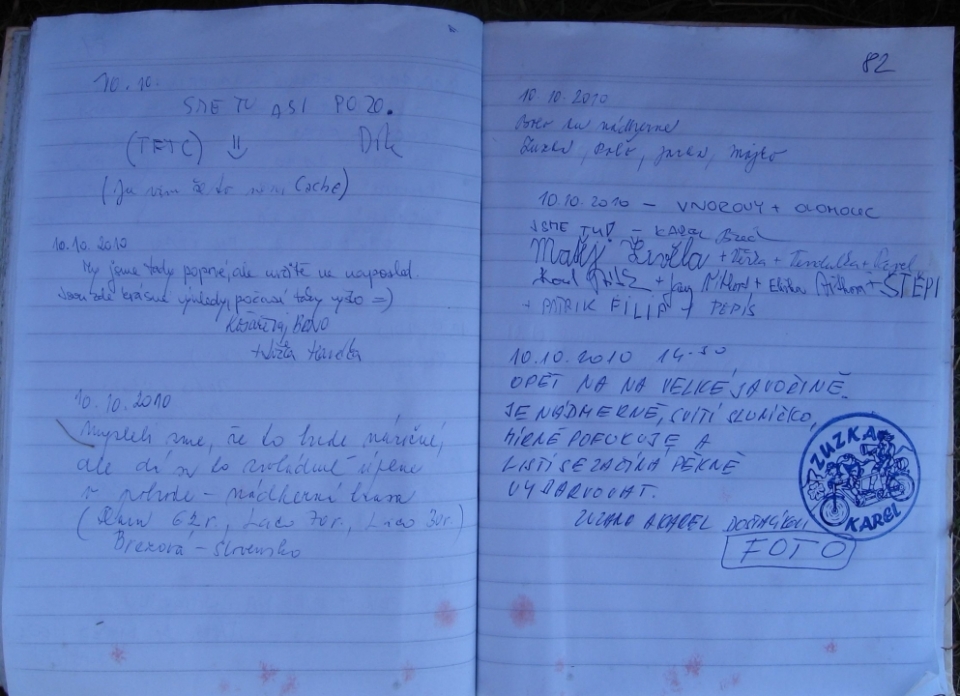 10.10.
SME TU ASI PO 20.
(TFTC)
(Ja vim že to neni Cache)
10.10.2010
My jsme tady poprvé, ale určitě ne naposled.
Jsou zde krásné výhledy, počasí taky vyšlo =)
BRNO
10.10.2010
Mysleli sme, že to bude náročné,
ale dá sa to zvládnuť úplne
v pohode - nádherná trasa
(62r., Laco 70r., Laco 30r.)
Brezová - Slovensko
82
10.10.2010
nádherne
Zuzka, Janka, Majko
10.10.2010 - VNOROVY + OLOMOUC
JSME TU! - KAREL
Matěj + Terka + Karel
Karel + Jan + Eliška + ŠTĚPI
+ PATRIK FILIP + PEPIS
10.10.2010 14.30
OPĚT NA NA VELKÉ JAVOŘINĚ.
JE NÁDHERNĚ, SVÍTÍ SLUNÍČKO,
MÍRNĚ POFUKUJE A
LISTÍ SE ZAČÍNÁ PĚKNĚ
VYBARVOVAT.
ZUZANA A KAREL
FOTO
ZUZKA
KAREL